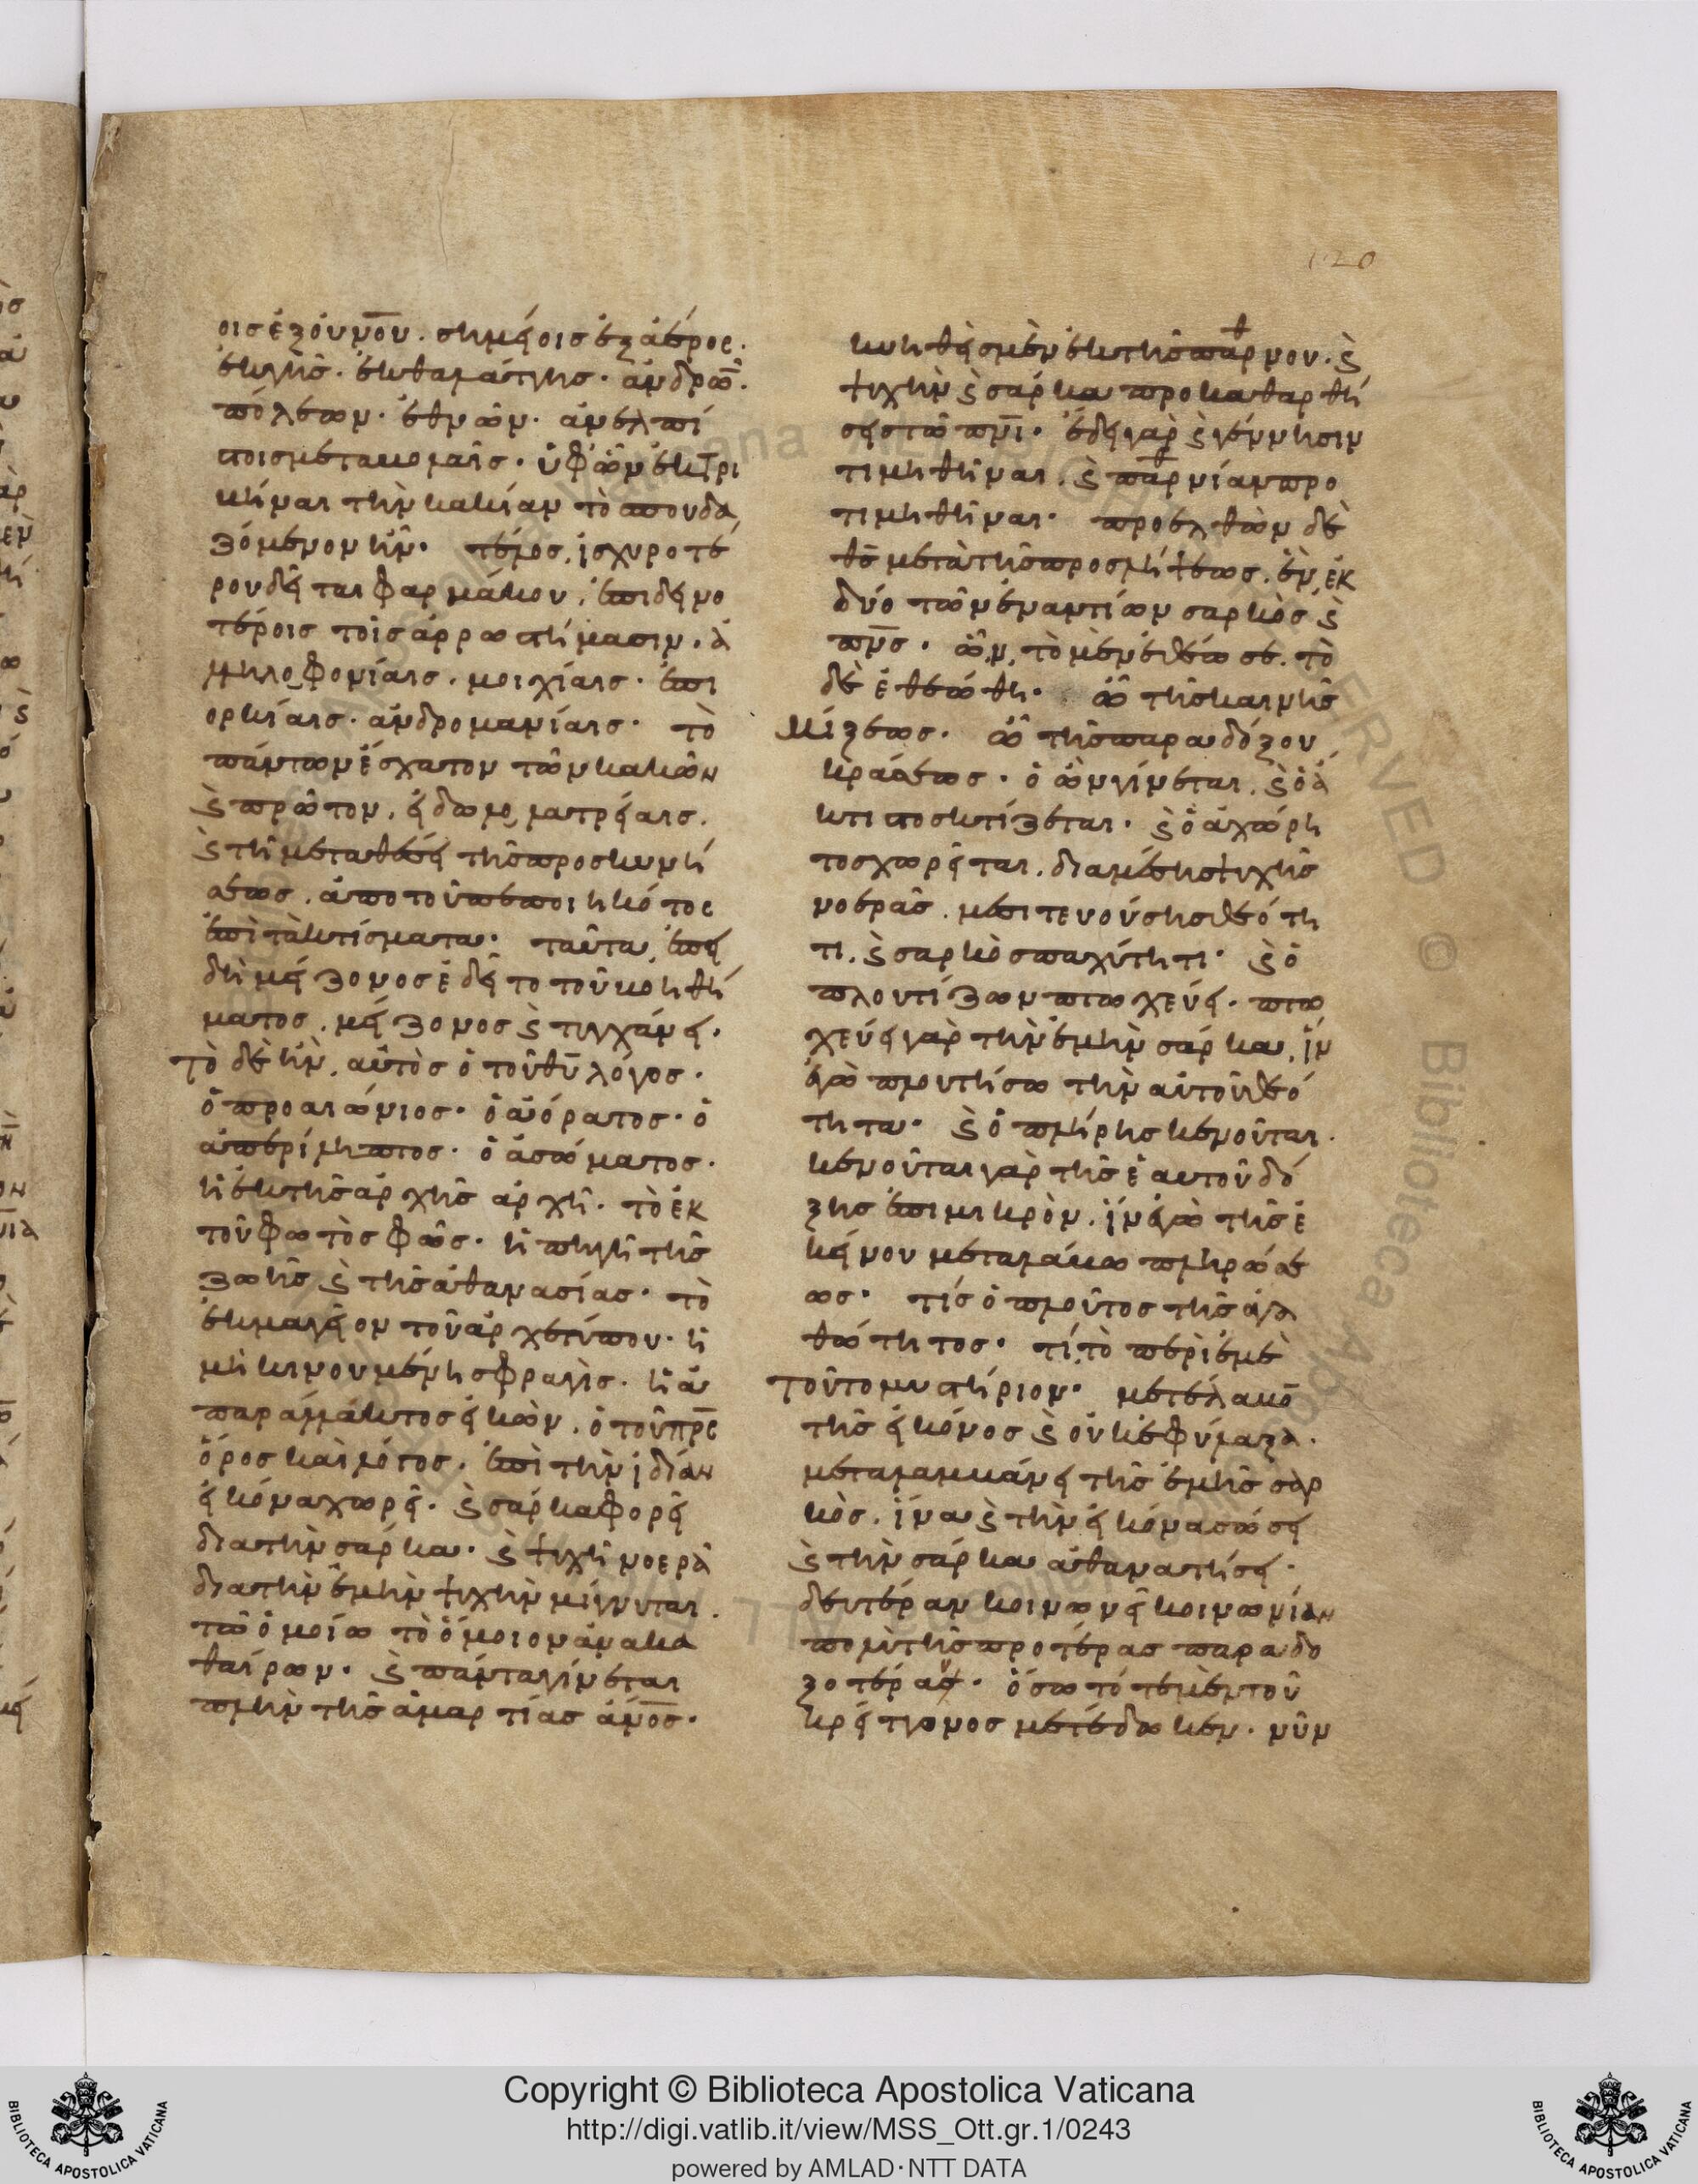 120
οις ἐξ οὐν̅ο̅υ· σημείοις ἐξ ἀέρος·
ἐκ γῆς· ἐκ θαλάσσης· ἀνδρῶ̅·
πόλεων· ἐθνῶν· ἀνελπί
στοις μεταβολαῖς· ὑφ' ὧν ἐκτρι
βῆναι τὴν κακίαν τὸ σπουδα
ζόμενον ἦν· τέλος ἰσχυροτέ
ρου δεῖται φαρμάκου, ἐπι δεινο
τέροις τοῖς ἀρρωστήμασιν. ἀ
λληλοφονίαις. μοιχίαις· ἐπι
ορκίαις· ἀνδρομανίαις· τὸ
πάντων ἔσχατον τῶν κακῶν
ϗ πρῶτον, εἰδωλολατρείαις.
ϗ τῆ μεταθέσει τῆς προσκυνή
σεως. ἀπο τοῦ πεποιηκότος
ἐπὶ τὰ κτίσματα· ταῦτα, ἐπει
δὴ μείζονος ἐδεῖτο τοῦ βοηθή
ματος, μείζονος ϗ τυγχάνει·
τὸ δὲ ἦν, αὐτὸς ὁ τοῦ θ̅υ̅ λόγος·
ὁ προαιώνιος· ὁ ἀόρατος· ὁ
ἀπερίληπτος· ὁ ἀσώματος·
ἡ ἐκ τῆς ἀρχῆς ἀρχή· τὸ ἐκ
τοῦ φωτὸς φῶς· ἡ πηγὴ τῆς
ζωῆς ϗ τῆς ἀθανασίας· τὸ
ἐκμαγεῖον τοῦ ἀρχετύπου· ἡ
μὴ κινουμένη σφραγίς· ἡ ἀ
παράλλακτος εἰκών. ὁ τοῦ π̅ρ̅ς
ὅρος καὶ λόγος· ἐπὶ τὴν ἰδίαν
εἰκόνα χωρεῖ· ϗ σάρκα φορεῖ
δια τὴν σάρκα· ϗ ψυχῆ νοερᾶ
δια τὴν ἐμὴν ψυχὴν μίγνυται.
τῶ ὁμοίω τὸ ὅμοιον ἀνακα
θαίρων· ϗ πάντα γίνεται
πλὴν τῆς ἁμαρτίας ἄν̅ο̅ς·
κυηθεὶς μὲν ἐκ τῆς παρθνου· ϗ
ψυχὴν ϗ σάρκα προκαθαρθεί
σης τῶ π̅ν̅ι· ἔδει γὰρ ϗ γέννησιν
τιμηθῆναι. ϗ παρθνίαν προ
τιμηθῆναι· προελθὼν δὲ
θ̅ς̅ μετὰ τῆς προσλήψεως. ἓν ἐκ
δύο τῶν ἐναντίων σαρκὸς ϗ
π̅ν̅ς· ὧν, τὸ μὲν ἐθέωσε. τὸ
δὲ ἐθεώθη· ὢ τῆς καινῆς
μίξεως· ὢ τῆς παραδόξου
κράσεως· ὁ ὢν γίνεται. ϗ ὁ ἄ
κτιστος κτίζεται· ϗ ὁ ἀχώρη
τος χωρεῖται. δια μέσης ψυχῆς
νοερᾶς. μεσιτευούσης θεότη
τι, ϗ σαρκὸς παχύτητι· ϗ ὁ
πλουτίζων πτωχεύει· πτω
χεύει γὰρ τὴν ἐμὴν σάρκα, ἵν
ἐγὼ πλουτήσω τὴν αὐτοῦ θεό
τητα· ϗ ὁ πλήρης κενοῦται·
κενοῦται γὰρ τῆς ἑαυτοῦ δό
ξης ἐπι μικρὸν. ἵν ἐγὼ τῆς ἐ
κείνου μεταλάβω πληρώσε
ως· τίς ὁ πλοῦτος τῆς ἀγα
θότητος· τί τὸ περὶ ἐμὲ
τοῦτο μυστήριον· μετέλαβο̅
τῆς εἰκόνος ϗ οὐκ ἐφύλαξα·
μεταλαμβάνει τῆς ἐμῆς σαρ
κὸς. ἵνα ϗ τὴν εἰκόνα σώση
ϗ τὴν σάρκα ἀθανατίση·
δευτέραν κοινωνεῖ κοινωνίαν
πολὺ τῆς προτέρας παραδο
ξοτέραν· ὅσω τότε μὲν τοῦ
κρείττονος μετέδωκεν· νῦν
Copyright © Biblioteca Apostolica Vaticana
http://digi.vatlib.it/view/MSS_Ott.gr.1/0243
powered by AMLAD·NTT DATA
BIBLIOTECA APOSTOLICA VATICANA
BIBLIOTECA APOSTOLICA VATICANA